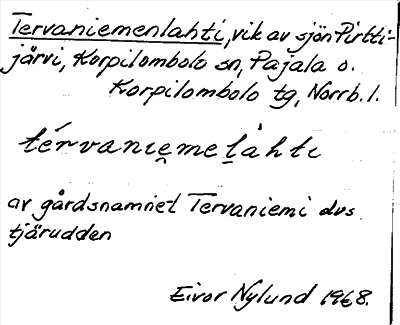 Tervaniemenlahti, vik av sjön Pirtti-
järvi, Korpilombolo sn, Pajala o.
Korpilombolo tg, Norrb. l.
térvanịemeḷàhti
av gårdsnamnet Tervaniemi dvs.
tjärudden
Eivor Nylund 1968.